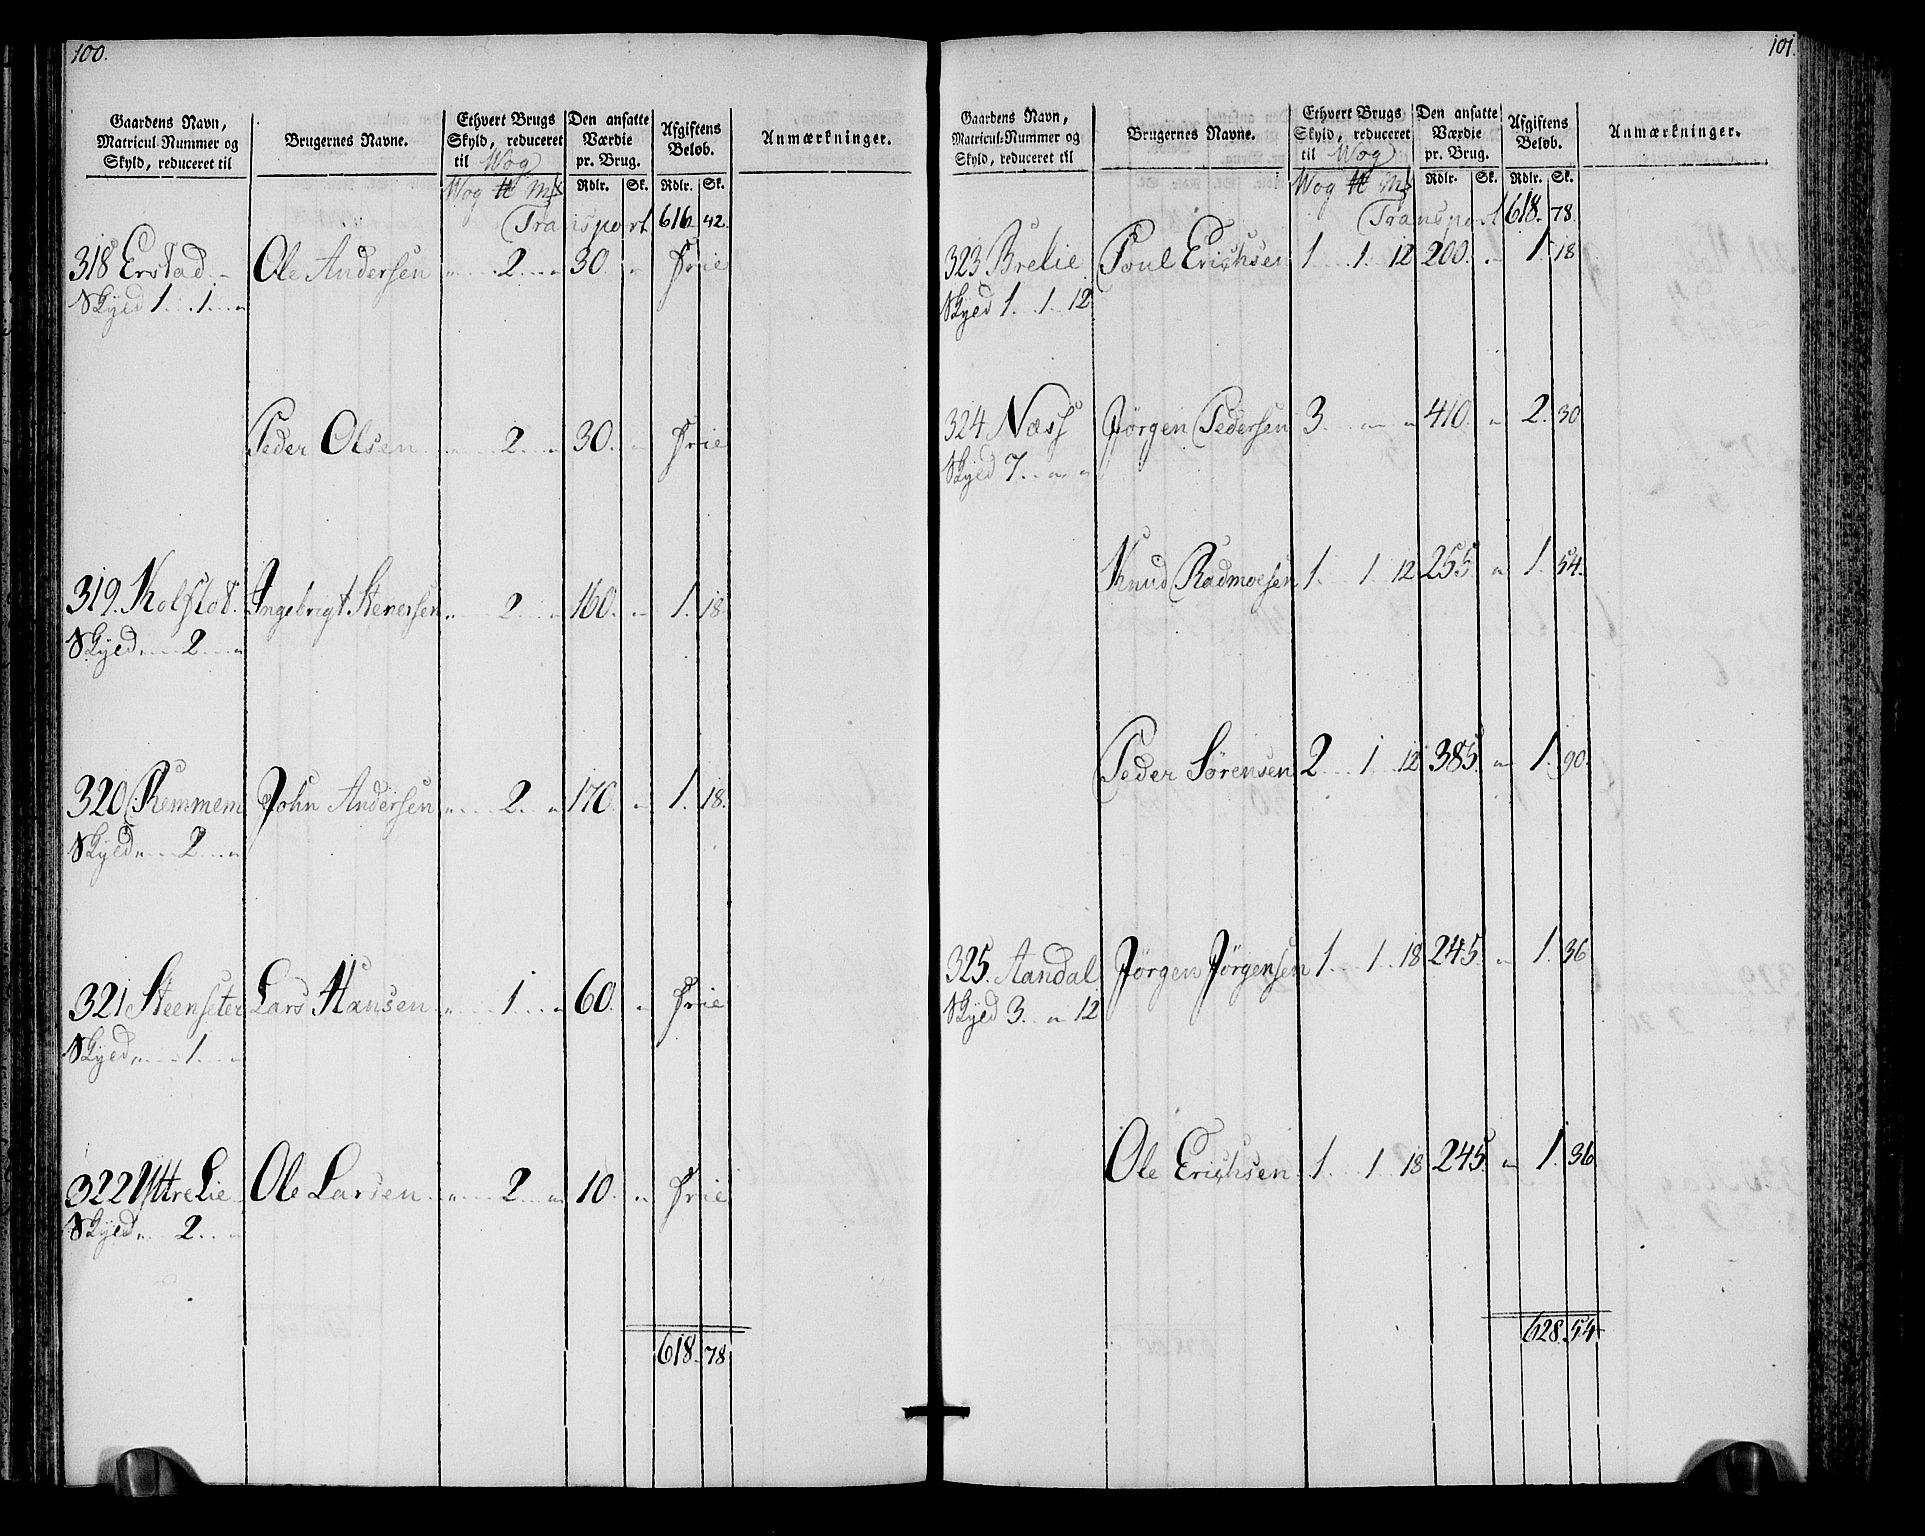 100.
Gaardens Navn, Matricul-Nummer og Skyld, reduceret til | Brugernes Navne. | Ethvert Brugs Skyld, reduceret til Wog | Den ansatte Værdie pr. Brug. | Afgiftens Beløb. | Anmærkninger.
Wog ℔ Mk | Rdlr. Sk. | Rdlr. Sk.
Transport 616. 42.
318 Erstad Ole Andersen " 2 " 30. " frie
Skyld 1. 1. "
Peder Olsen " 2. " 30. " frie
319. Kolflot. Ingebrigt Steversen " 2 " 160. " 1. 18.
Skyld " 2 "
320 Remmem John Andersen " 2. " 170. " 1. 18.
Skyld " 2 "
321 Steenseter Lars Hansen " 1. " 60. " frie
Skyld " 1. "
322 Yttre Lie Ole Larsen " 2 " 10. " frie
Skyld " 2. "
618. 78
101.
Gaardens Navn, Matricul-Nummer og Skyld, reduceret til | Brugernes Navne. | Ethvert Brugs Skyld, reduceret til Wog | Den ansatte Værdie pr. Brug. | Afgiftens Beløb. | Anmærkninger.
Wog ℔ Mk | Rdlr. Sk. | Rdlr. Sk.
Transport 618. 78.
323 Brelie Poul Erichsen 1 1. 12 200. " 1. 18
Skyld 1. 1. 12
324 Næss Jørgen Pedersen 3. " " 410. " 2. 30
Skyld 7. " "
Knud Rasmoesen 1. 1 12 255 " 1. 54.
Peder Sørensen 2 1 12 385. " 1. 90.
325. Aandal Jørgen Jørgensen 1. 1. 18 245. " 1. 36
Skyld 3. " 12
Ole Erichsen 1. 1 18 245. " 1. 36
628. 54